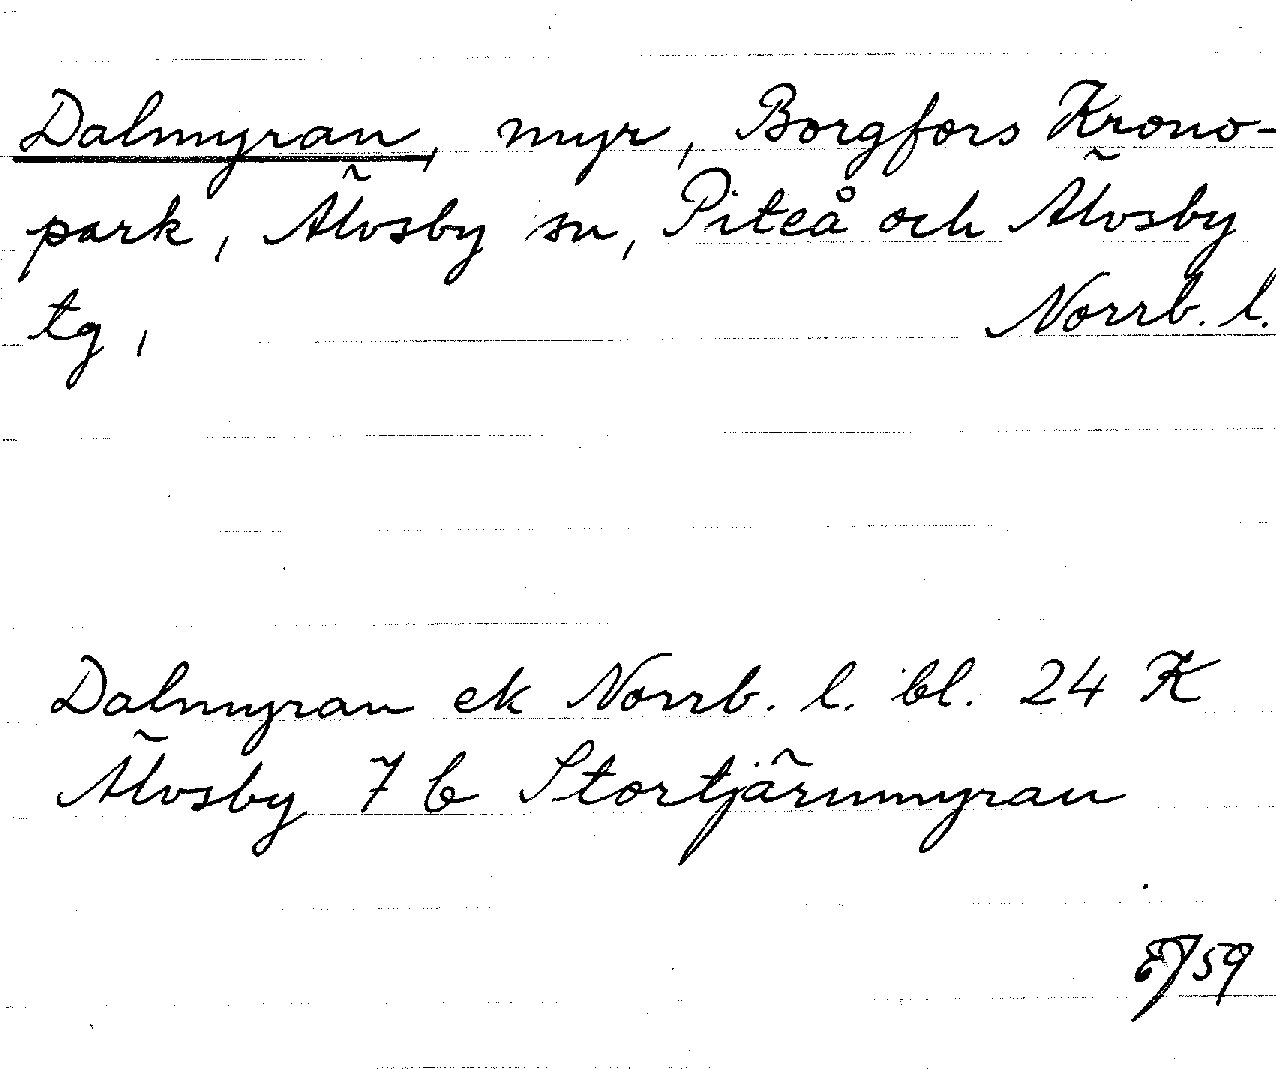 Dalmyran, myr, Borgfors Krono-
park, Älvsby sn, Piteå och Älvsby
tg, Norrb. l.
Dalmyran ek Norrb. l. bl. 24 K
Älvsby 7 b Stortjärnmyran
59